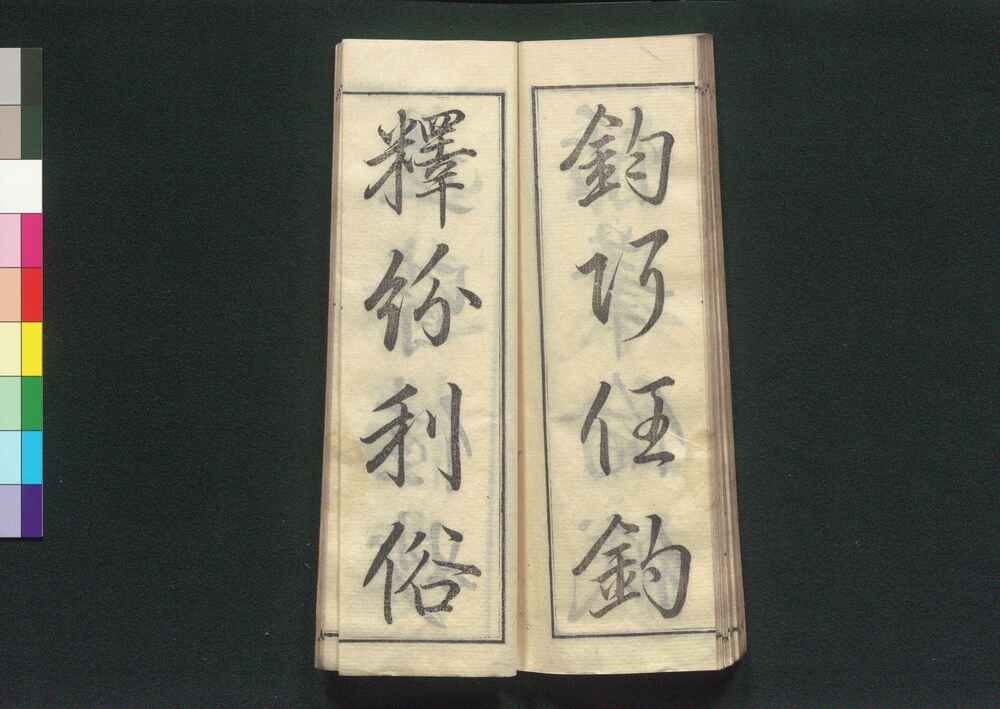 鈞巧任釣
釋紛利俗